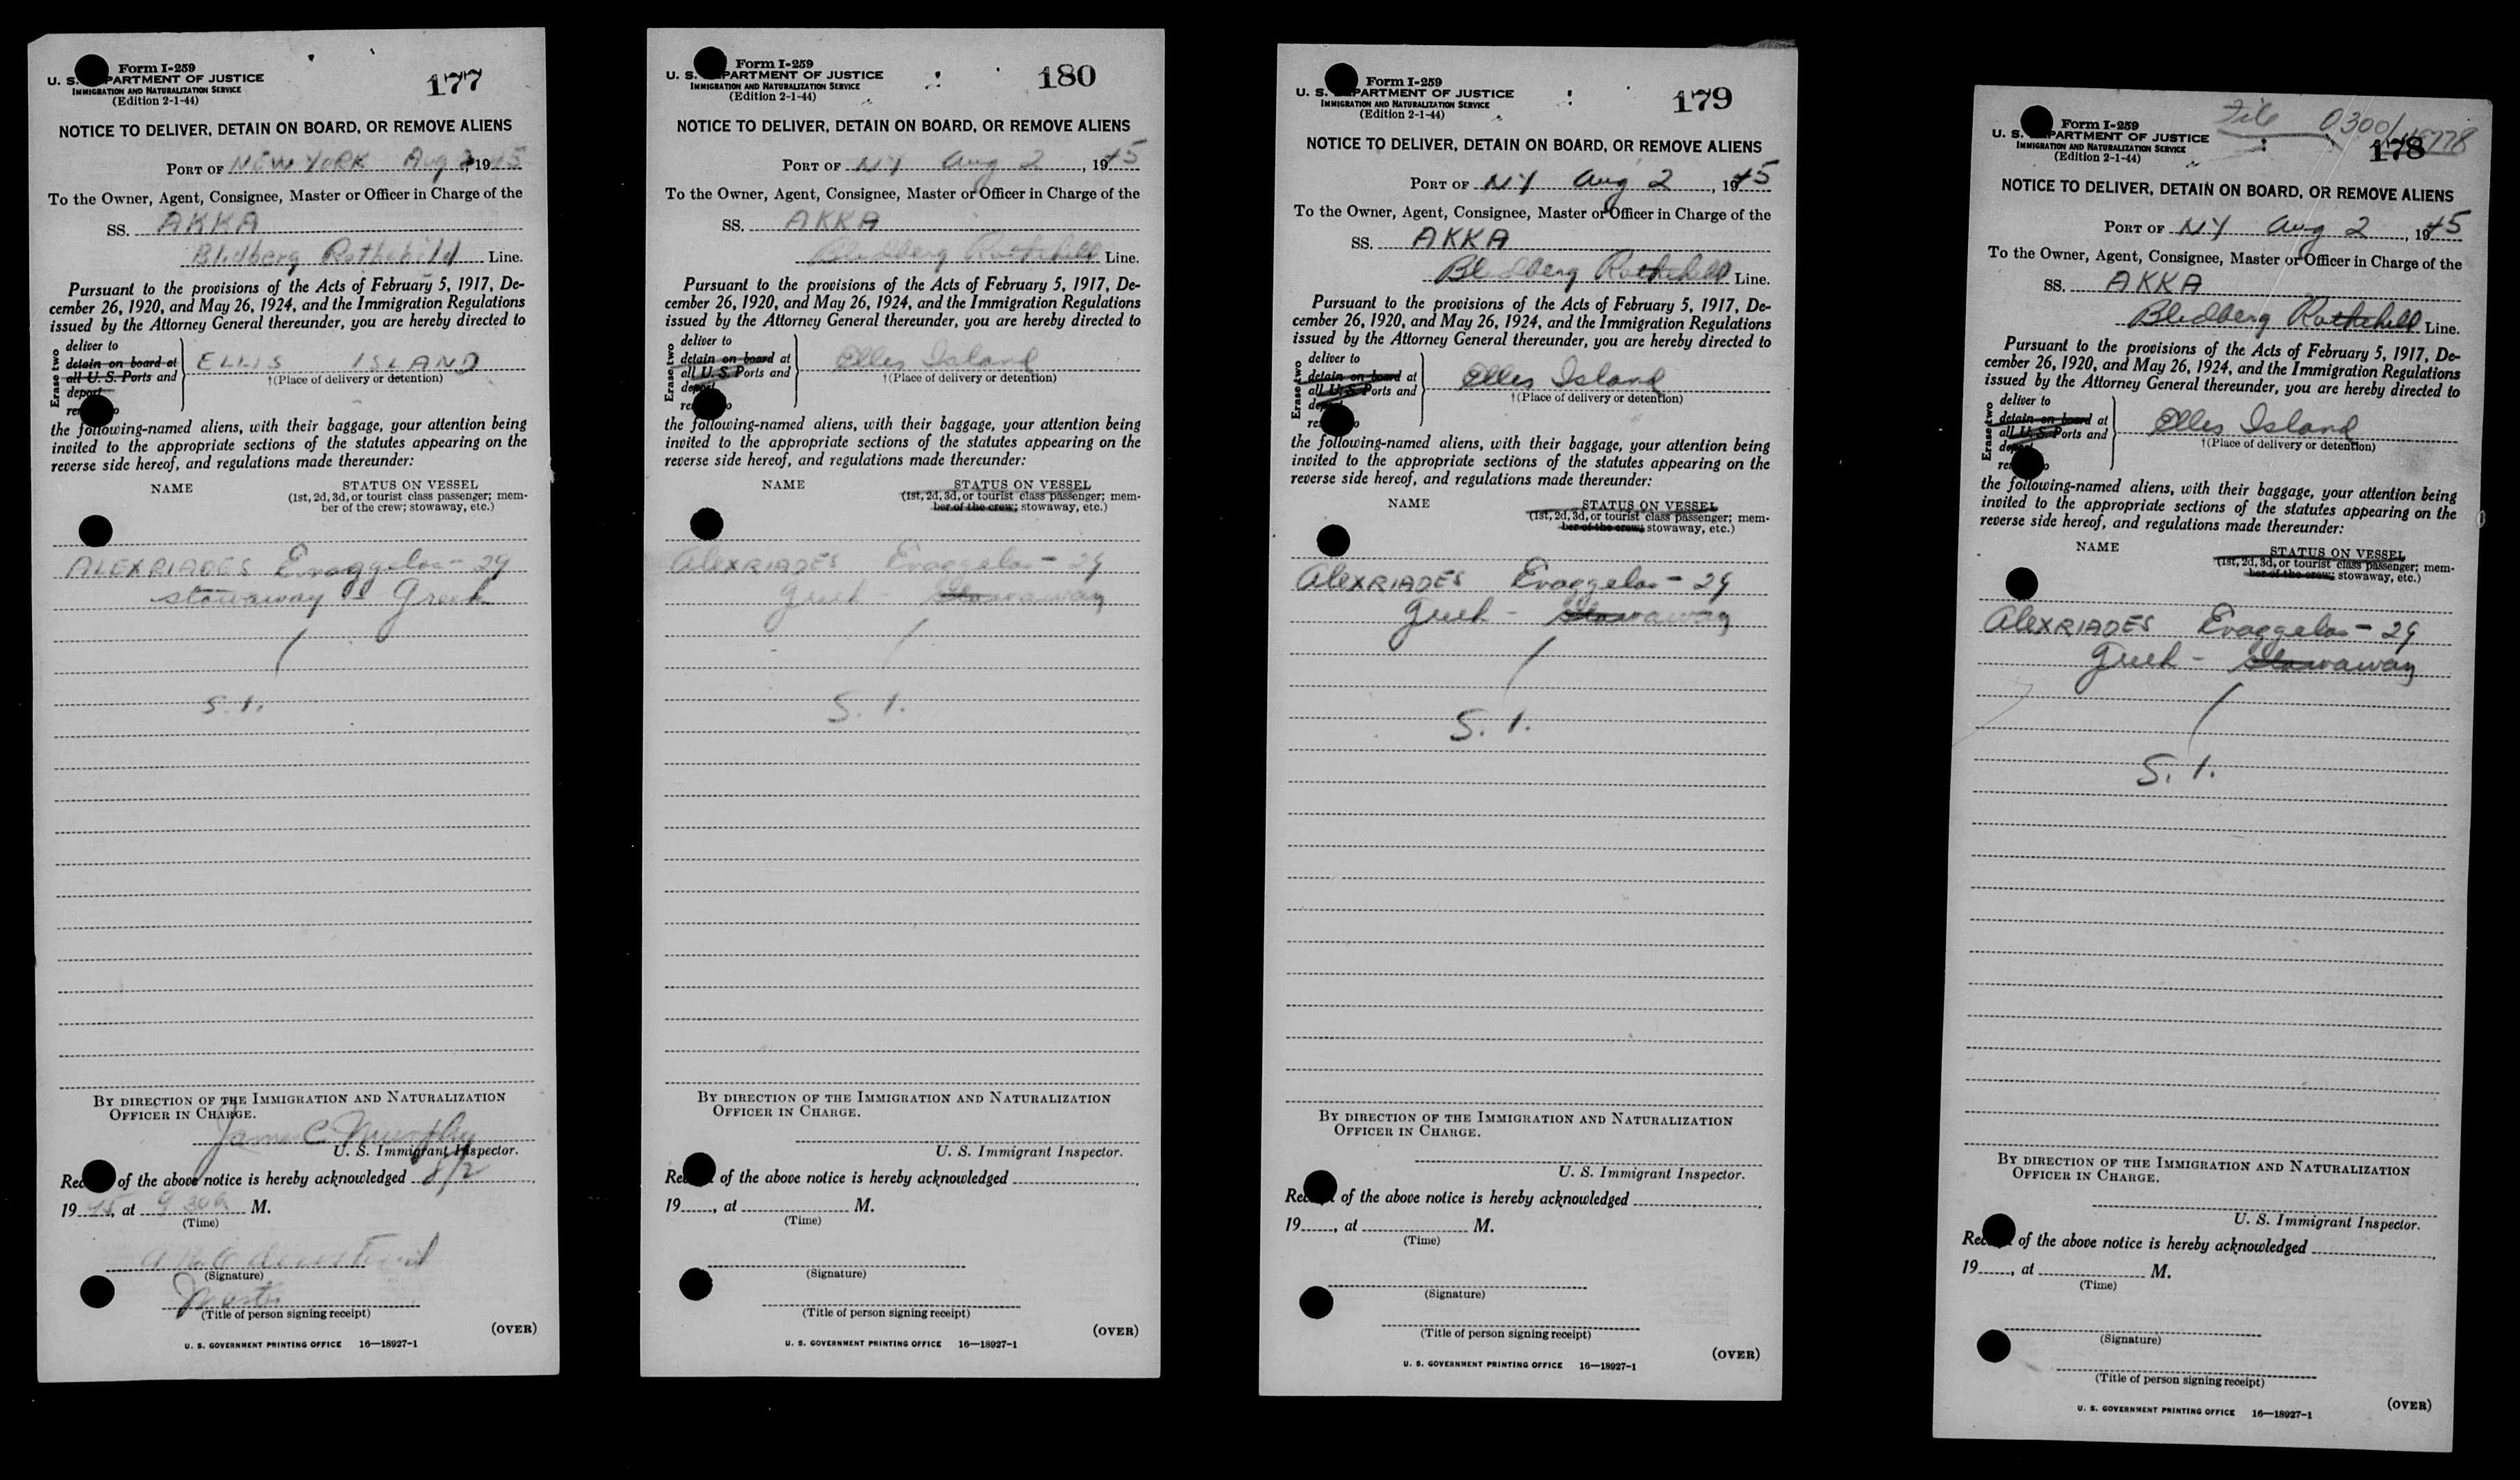 Form I-259
U. S. DEPARTMENT OF JUSTICE
IMMIGRATION AND NATURALIZATION SERVICE
(Edition 2-1-44)
177
NOTICE TO DELIVER, DETAIN ON BOARD, OR REMOVE ALIENS
PORT OF NEW YORK Aug 2, 1945
To the Owner, Agent, Consignee, Master or Officer in Charge of the
SS. AKKA
Bledberg Rothchild Line.
Pursuant to the provisions of the Acts of February 5, 1917, De-
cember 26, 1920, and May 26, 1924, and the Immigration Regulations
issued by the Attorney General thereunder, you are hereby directed to
Erase two
deliver to
detain on board at
all U. S. Ports and
deport
ELLIS ISLAND
†(Place of delivery or detention)
the following-named aliens, with their baggage, your attention being
invited to the appropriate sections of the statutes appearing on the
reverse side hereof, and regulations made thereunder:
NAME STATUS ON VESSEL
(1st, 2d, 3d, or tourist class passenger; mem-
ber of the crew; stowaway, etc.)
ALEXRIADES Evaggelos - 29
stowaway - Greek
S. I.
BY DIRECTION OF THE IMMIGRATION AND NATURALIZATION
OFFICER IN CHARGE.
James C. Murphy
U. S. Immigrant Inspector.
Receipt of the above notice is hereby acknowledged 8/2
1945, at 9 30 a M.
(Time)
(Signature)
Master
(Title of person signing receipt)
(OVER)
U. S. GOVERNMENT PRINTING OFFICE 16—18927-1
Form I-259
U. S. DEPARTMENT OF JUSTICE
IMMIGRATION AND NATURALIZATION SERVICE
(Edition 2-1-44)
180
NOTICE TO DELIVER, DETAIN ON BOARD, OR REMOVE ALIENS
PORT OF NY Aug 2, 1945
To the Owner, Agent, Consignee, Master or Officer in Charge of the
SS. AKKA
Bledberg Rothchild Line.
Pursuant to the provisions of the Acts of February 5, 1917, De-
cember 26, 1920, and May 26, 1924, and the Immigration Regulations
issued by the Attorney General thereunder, you are hereby directed to
Erase two
deliver to
detain on board at
all U. S. Ports and
deport
Ellis Island
†(Place of delivery or detention)
the following-named aliens, with their baggage, your attention being
invited to the appropriate sections of the statutes appearing on the
reverse side hereof, and regulations made thereunder:
NAME STATUS ON VESSEL
(1st, 2d, 3d, or tourist class passenger; mem-
ber of the crew; stowaway, etc.)
AleXRIADES Evaggelos - 29
Greek - Stowaway
S. I.
BY DIRECTION OF THE IMMIGRATION AND NATURALIZATION
OFFICER IN CHARGE.
U. S. Immigrant Inspector.
Receipt of the above notice is hereby acknowledged
19, at M.
(Time)
(Signature)
(Title of person signing receipt)
(OVER)
U. S. GOVERNMENT PRINTING OFFICE 16—18927-1
Form I-259
U. S. DEPARTMENT OF JUSTICE
IMMIGRATION AND NATURALIZATION SERVICE
(Edition 2-1-44)
179
NOTICE TO DELIVER, DETAIN ON BOARD, OR REMOVE ALIENS
PORT OF NY Aug 2, 1945
To the Owner, Agent, Consignee, Master or Officer in Charge of the
SS. AKKA
Bledberg Rothchild Line.
Pursuant to the provisions of the Acts of February 5, 1917, De-
cember 26, 1920, and May 26, 1924, and the Immigration Regulations
issued by the Attorney General thereunder, you are hereby directed to
Erase two
deliver to
detain on board at
all U. S. Ports and
deport
Ellis Island
†(Place of delivery or detention)
the following-named aliens, with their baggage, your attention being
invited to the appropriate sections of the statutes appearing on the
reverse side hereof, and regulations made thereunder:
NAME STATUS ON VESSEL
(1st, 2d, 3d, or tourist class passenger; mem-
ber of the crew; stowaway, etc.)
AleXRIADES Evaggelos - 29
Greek - Stowaway
S. I.
BY DIRECTION OF THE IMMIGRATION AND NATURALIZATION
OFFICER IN CHARGE.
U. S. Immigrant Inspector.
Receipt of the above notice is hereby acknowledged
19, at M.
(Time)
(Signature)
(Title of person signing receipt)
(OVER)
U. S. GOVERNMENT PRINTING OFFICE 16—18927-1
File 0300/
Form I-259
U. S. DEPARTMENT OF JUSTICE
IMMIGRATION AND NATURALIZATION SERVICE
(Edition 2-1-44)
178
NOTICE TO DELIVER, DETAIN ON BOARD, OR REMOVE ALIENS
PORT OF NY Aug 2, 1945
To the Owner, Agent, Consignee, Master or Officer in Charge of the
SS. AKKA
Bledberg Rothchild Line.
Pursuant to the provisions of the Acts of February 5, 1917, De-
cember 26, 1920, and May 26, 1924, and the Immigration Regulations
issued by the Attorney General thereunder, you are hereby directed to
Erase two
deliver to
detain on board at
all U. S. Ports and
deport
Ellis Island
†(Place of delivery or detention)
the following-named aliens, with their baggage, your attention being
invited to the appropriate sections of the statutes appearing on the
reverse side hereof, and regulations made thereunder:
NAME STATUS ON VESSEL
(1st, 2d, 3d, or tourist class passenger; mem-
ber of the crew; stowaway, etc.)
AleXRIADES Evaggelos - 29
Greek - Stowaway
S. I.
BY DIRECTION OF THE IMMIGRATION AND NATURALIZATION
OFFICER IN CHARGE.
U. S. Immigrant Inspector.
Receipt of the above notice is hereby acknowledged
19, at M.
(Time)
(Signature)
(Title of person signing receipt)
(OVER)
U. S. GOVERNMENT PRINTING OFFICE 16—18927-1